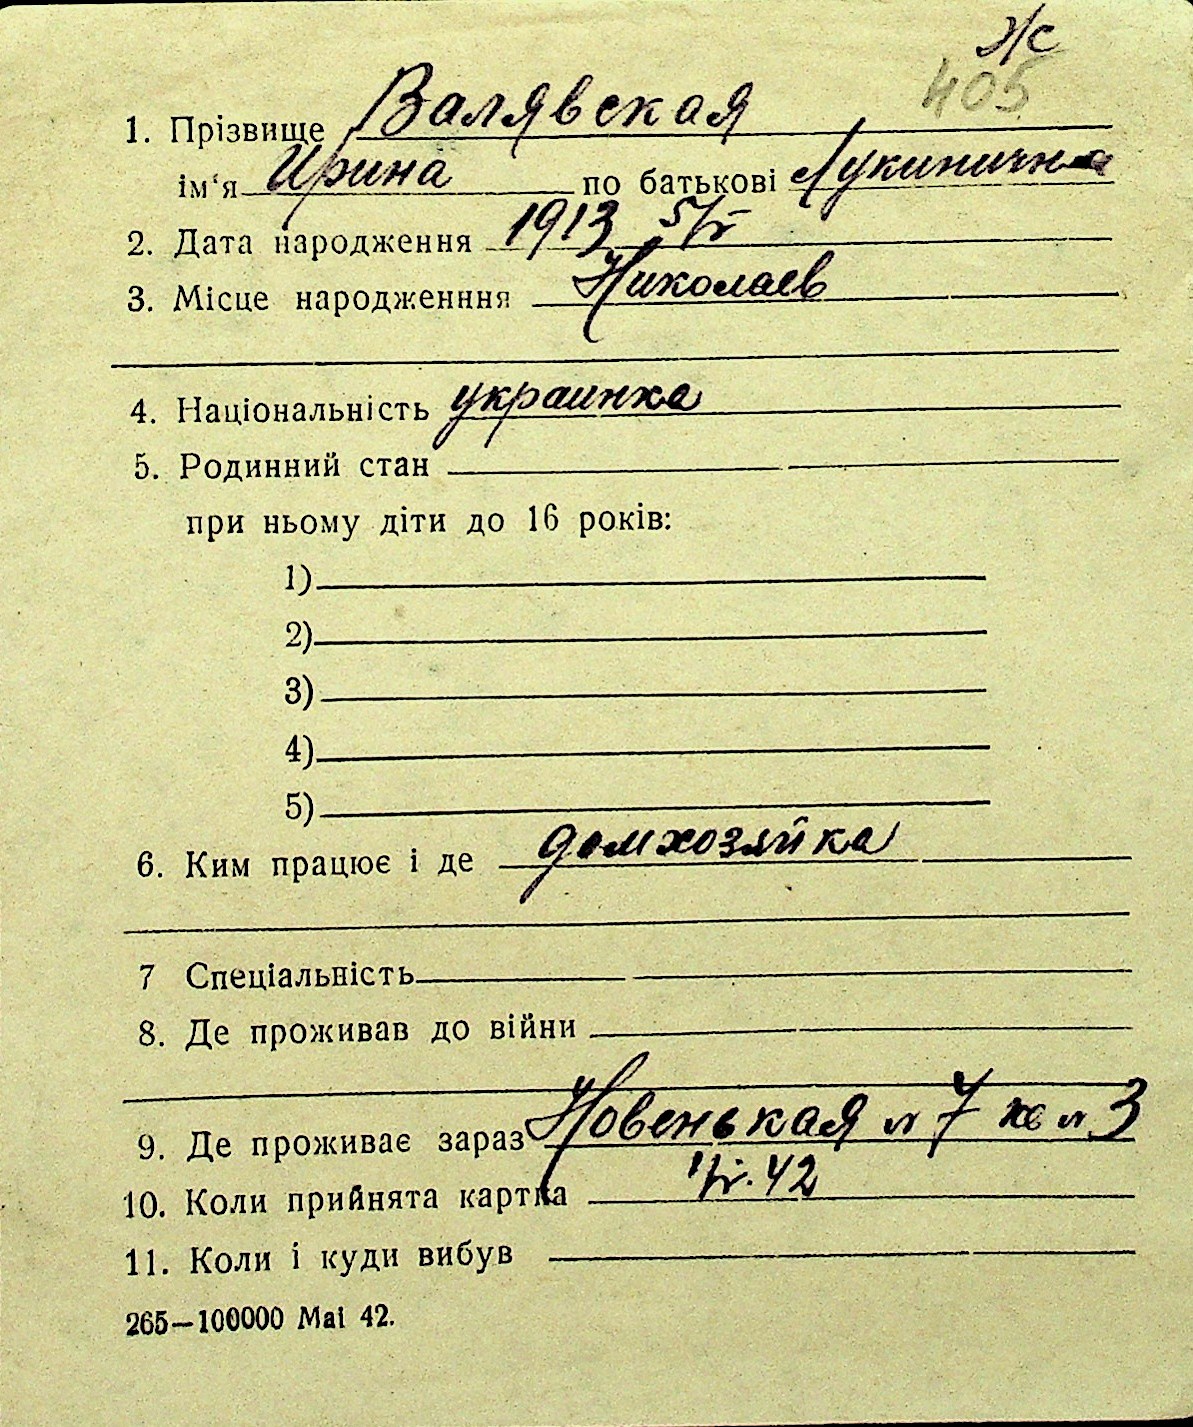 Ж
405
1. Прізвище Валявская
ім‘я Ирина по батькові Лукинична
2. Дата народження 1913 5/V
3. Місце народженння Николаев
4. Національність украинка
5. Родинний стан
при ньому діти до 16 років:
1)
2)
3)
4)
5)
6. Ким працює і де домхозяйка
7 Спеціальність
8. Де проживав до війни
9. Де проживає зараз Новенькая 7 3
10. Коли прийнята картка 42
11. Коли і куди вибув
265—100000 Mai 42.